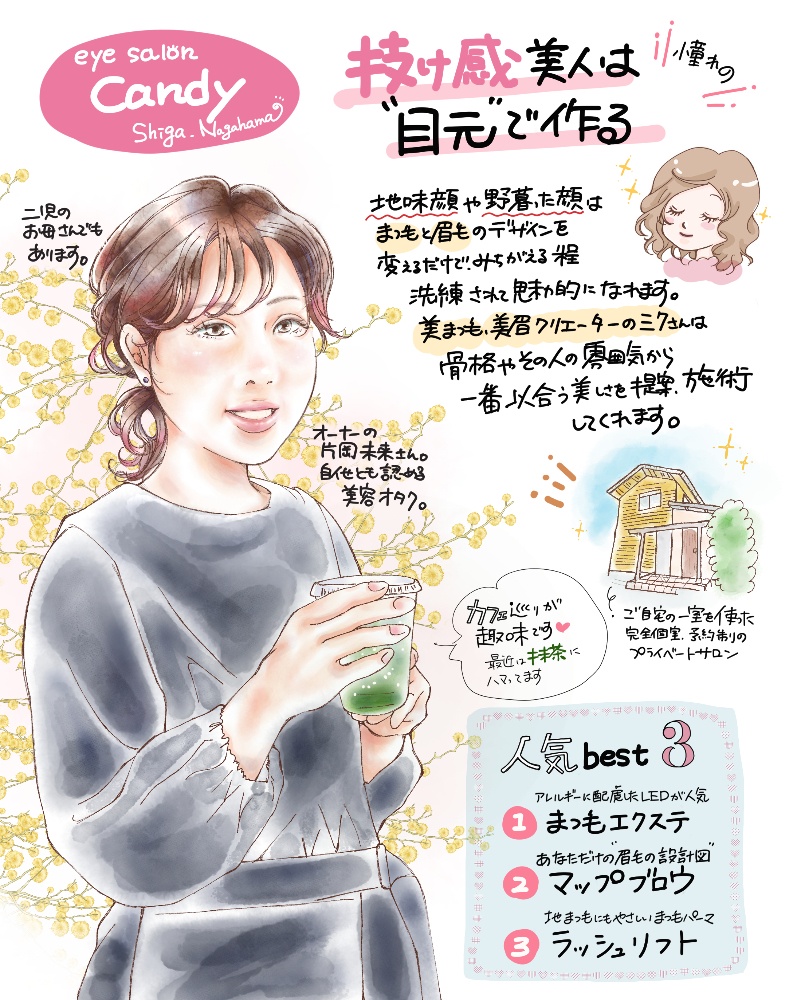 eye salon
Candy
Shiga. Nagahama
憧れの
抜け感美人は
"目元"で作る
二児の
お母さんでも
あります。
地味顔や野暮った顔は
まつもと眉毛のデザインを
変えるだけで、みちがえる程
洗練されて魅力的になれます。
美まつも、美眉クリエーターのミクさんは
骨格やその人の雰囲気から
一番似合う美しさを提案、施術
してくれます。
オーナーの
片岡未来さん。
自他とも認める
美容オタク。
カフェ巡りが
趣味です♥
最近は抹茶に
ハマってます
ご自宅の一室を使った
完全個室、予約制の
プライベートサロン
人気best3
アレルギーに配慮したLEDが人気
1 まつもエクステ
あなただけの"眉毛の設計図"
2 マップブロウ
地まつもにもやさしいまつもパーマ
3 ラッシュリフト